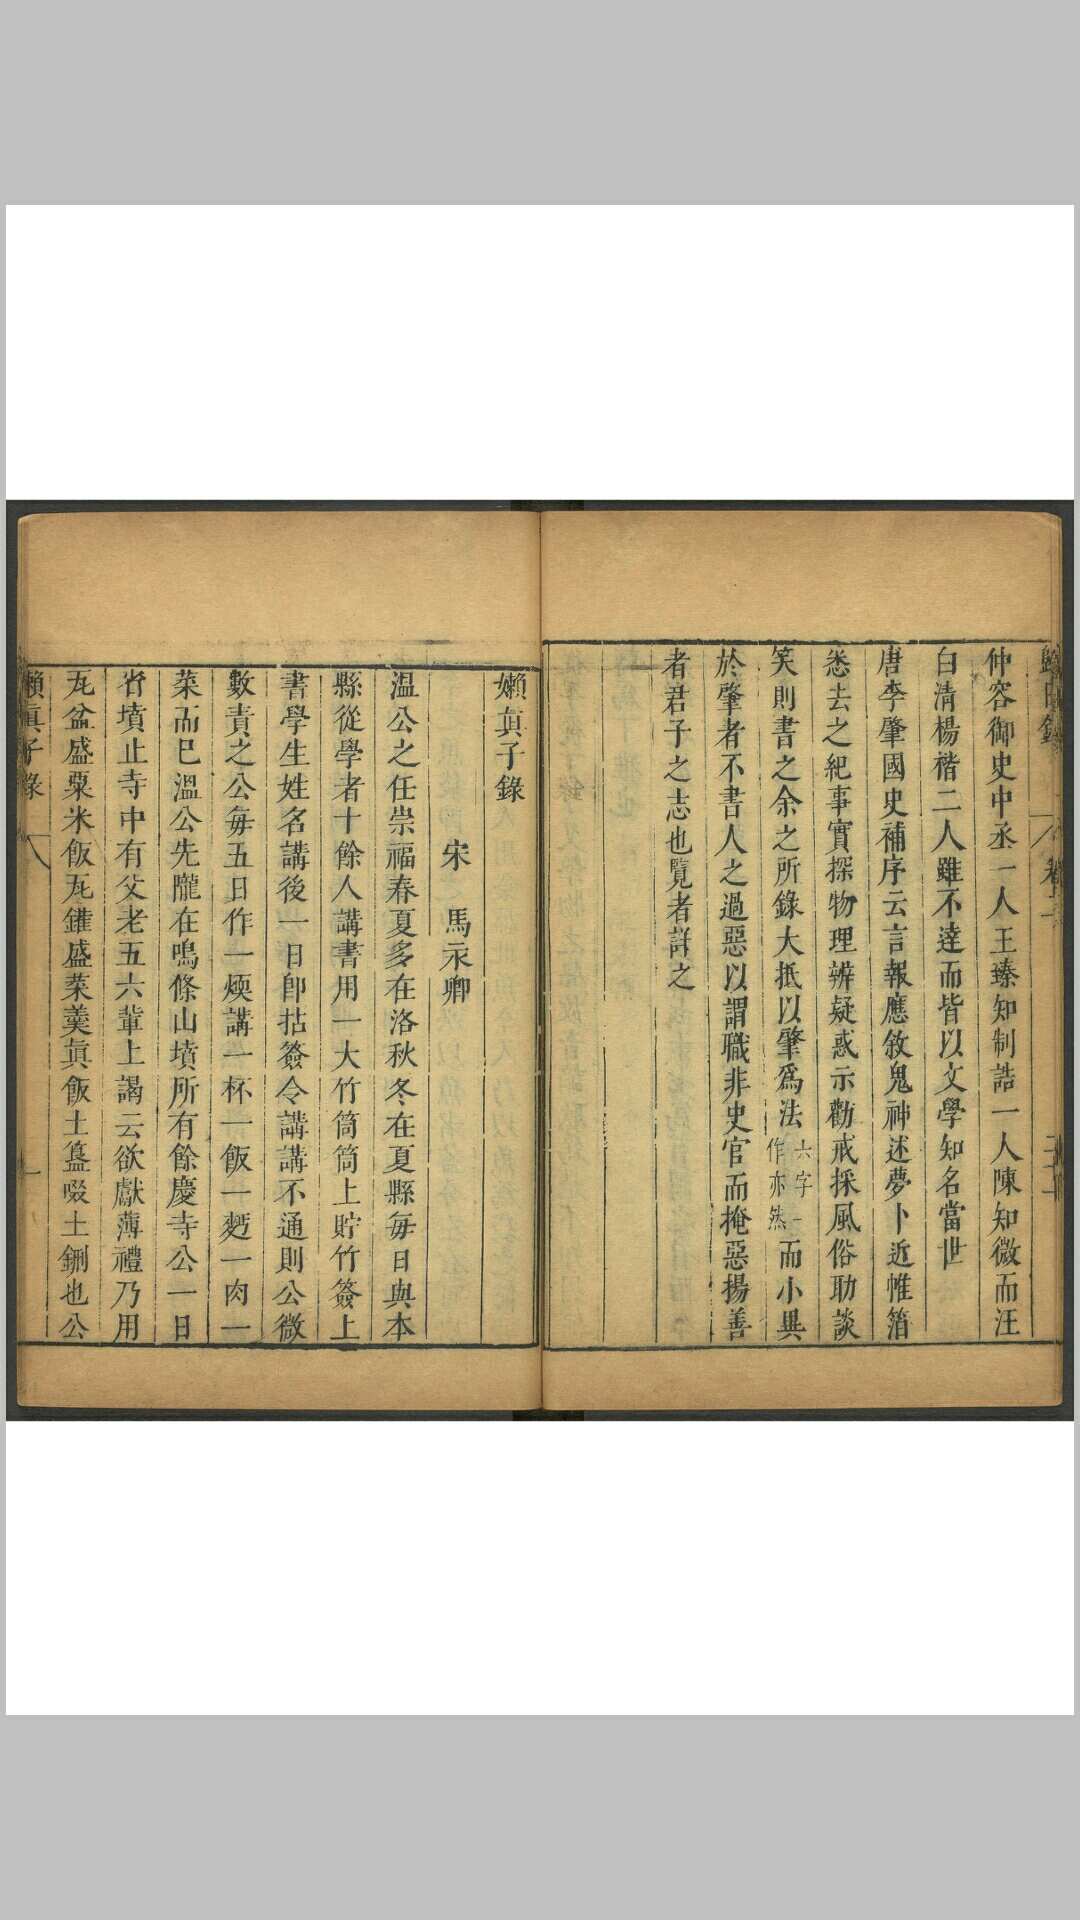 歸田錄 卷上
仲容御史中丞一人王臻知制誥一人陳知微而汪
白清楊楷二人雖不達而皆以文學知名當世
唐李肇國史補序云言報應敘鬼神述夢卜近帷箔
悉去之紀事實探物理辨疑惑示勸戒採風俗助談
笑則書之余之所錄大抵以肇爲法六字一作亦然而小異
於肇者不書人之過惡以謂職非史官而掩惡揚善
者君子之志也覽者詳之
嬾真子錄
宋 馬永卿
溫公之任崇福春夏多在洛秋冬在夏縣每日與本
縣從學者十餘人講書用一大竹筒筒上貯竹簽上
書學生姓名講後一日卽拈簽令講講不通則公微
數責之公每五日作一煖講一杯一飯一麪一肉一
菜而已溫公先隴在鳴條山墳所有餘慶寺公一日
省墳止寺中有父老五六輩上謁云欲獻薄禮乃用
瓦盆盛粟米飯瓦罐盛菜羹眞飯土簋啜土鉶也公
嬾眞子錄 一